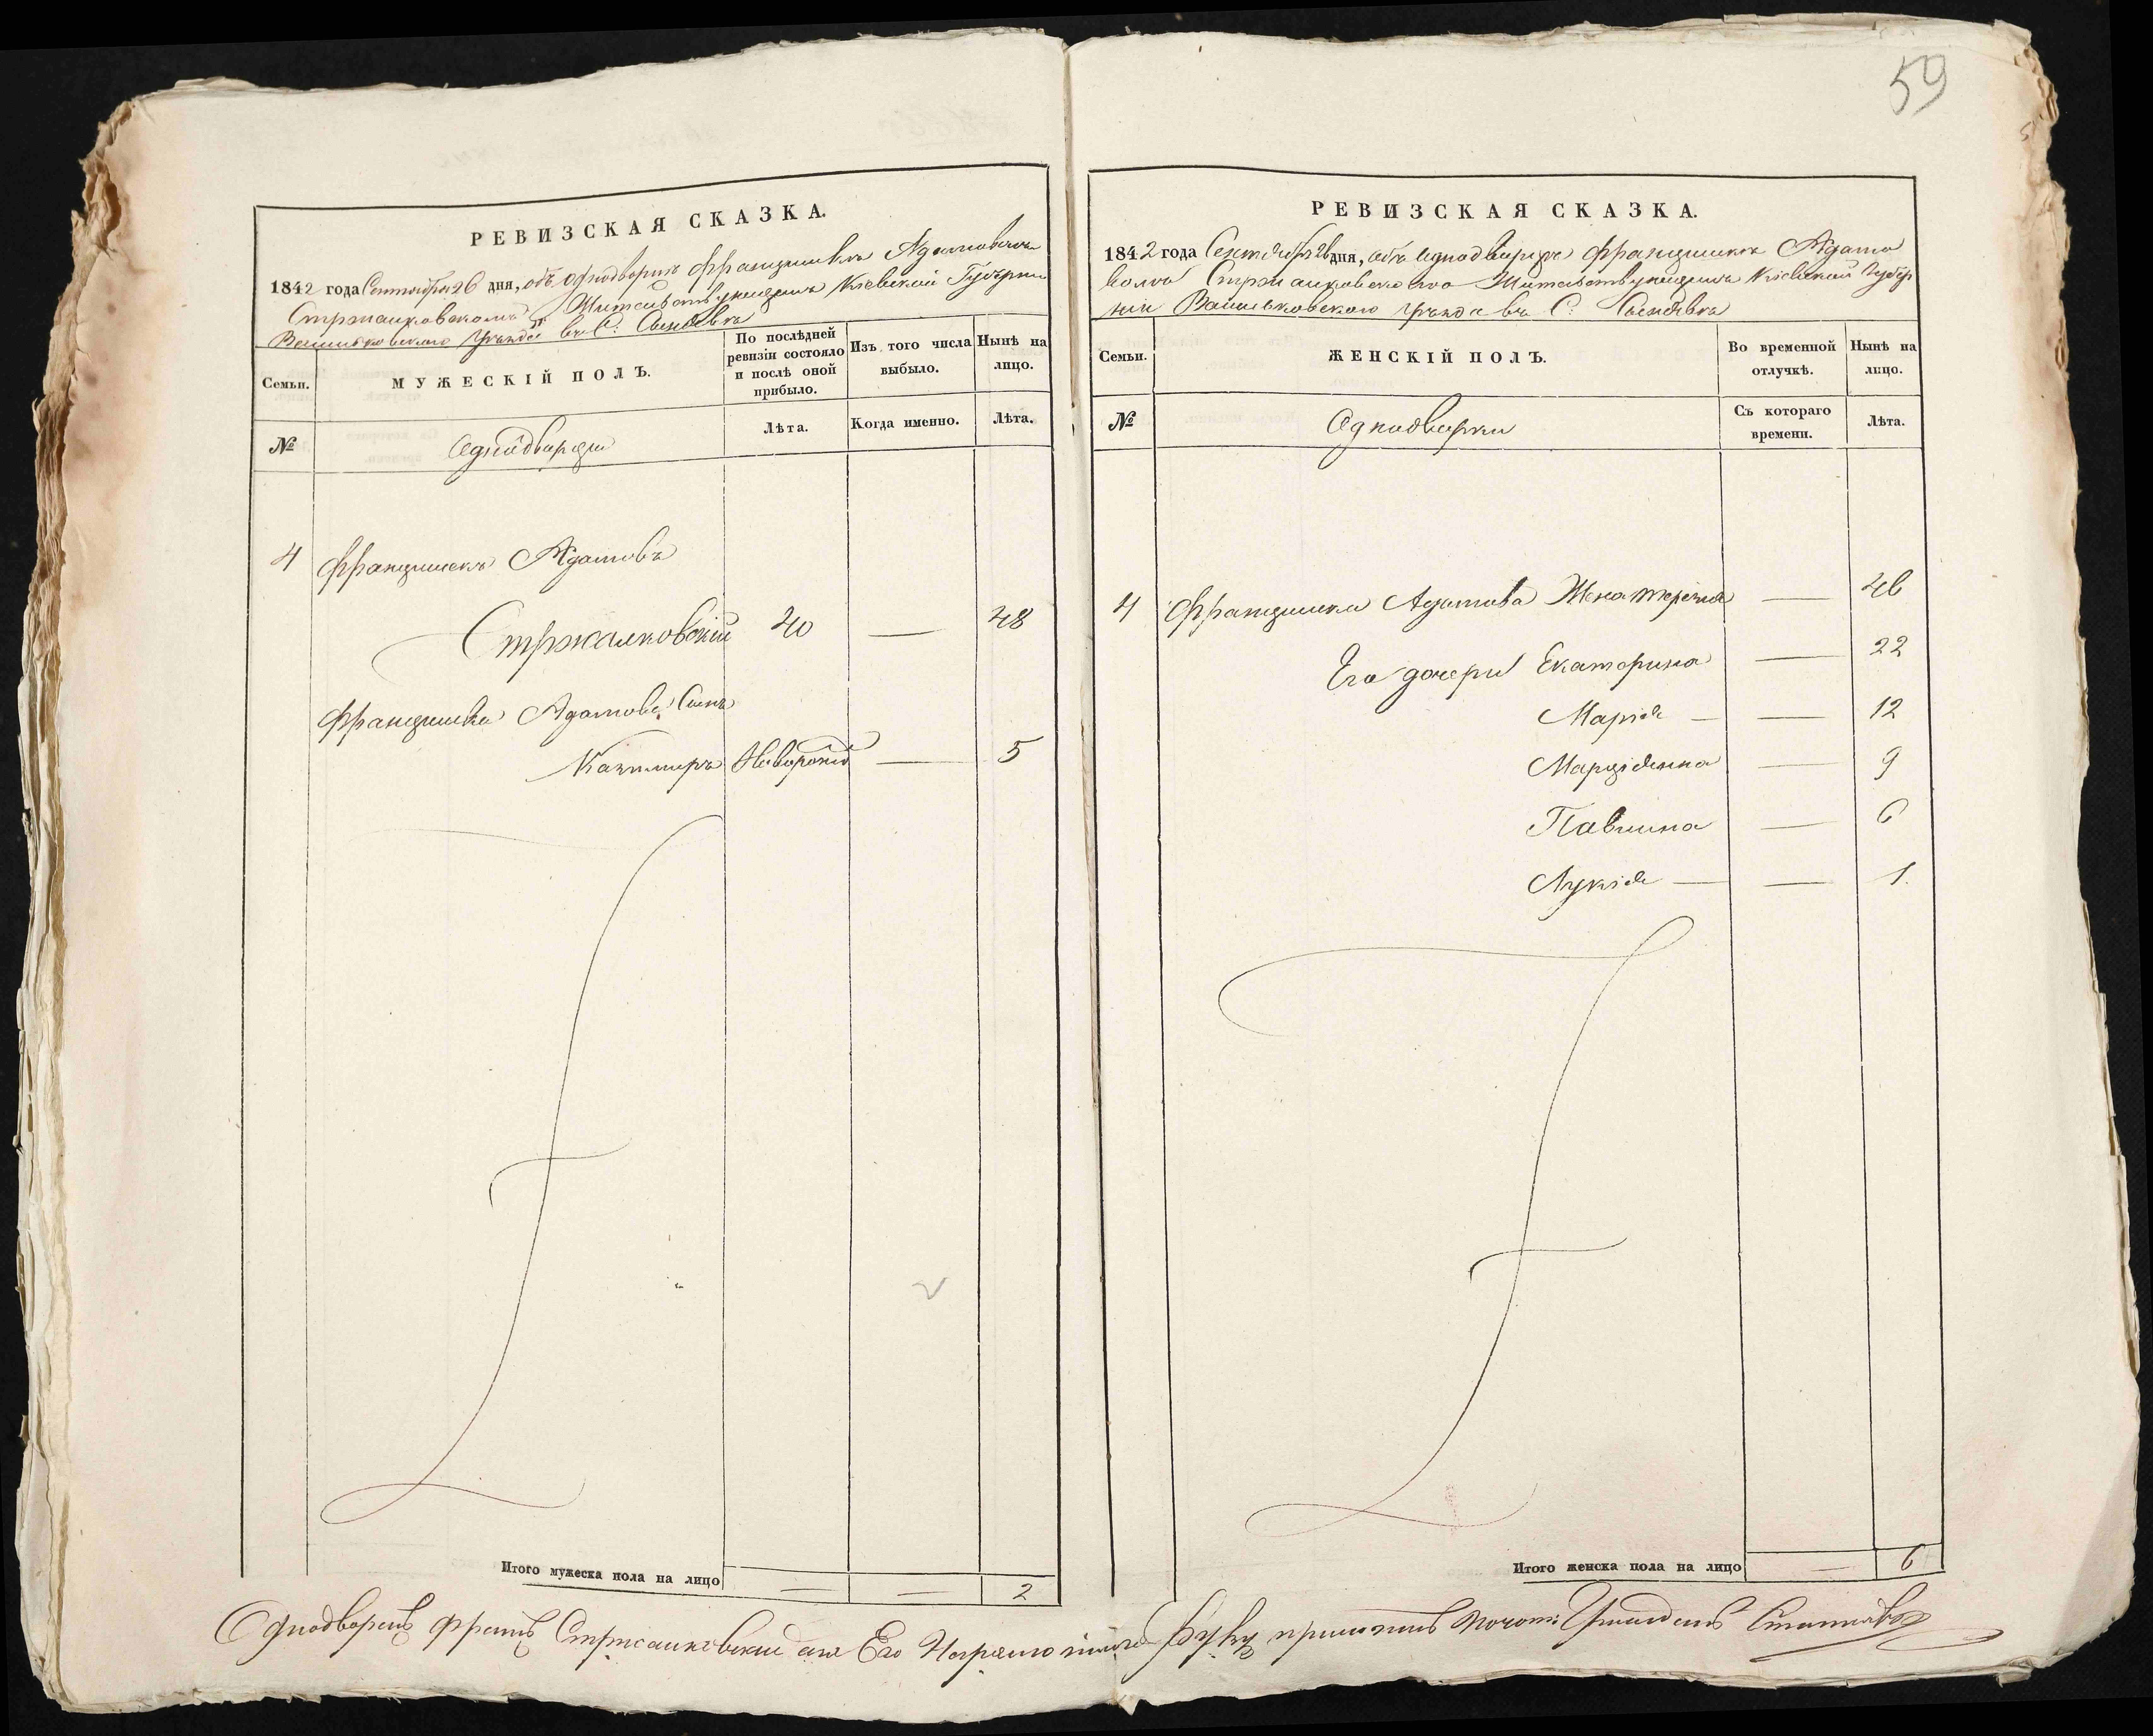 59
РЕВИЗСКАЯ СКАЗКА.
1842 года Сентября 26 дня, объ однодворцѣ Францишкѣ Адамовомъ
Стржалковскомъ Жительствующемъ Кіевской Губерніи
Васильковскаго Уѣзда въ С:
Семьи.
МУЖЕСКІЙ ПОЛЪ.
По послѣдней ревизіи состояло и послѣ оной прибыло.
Изъ того числа выбыло.
Нынѣ на лицо.
№
Однодворцы
Лѣта.
Когда именно.
Лѣта.
4 Францишекъ Адамовъ
Стржалковскій 40 — 48
Францишка Адамова Сынъ
Казимиръ Новорожд — 5
Итого мужеска пола на лицо — — 2
РЕВИЗСКАЯ СКАЗКА.
1842 года Сентября 26 дня, объ однодворцѣ Францишкѣ Адамо
вомъ Стржалковскомъ Жительствующемъ Кіевской Губер
ніи Васильковскаго Уѣзда въ С:
Семьи.
ЖЕНСКІЙ ПОЛЪ.
Во временной отлучкѣ.
Нынѣ на лицо.
№
Однодворки
Съ котораго времени.
Лѣта.
4 Францишка Адамова Жена Терезія — 46
Его дочери Екатерина — 22
Марія — — 12
Марціянна — 9
Павлина — 6
Лукія — — 1.
Итого женска пола на лицо — 6
Однодворецъ Францъ Стржалковскій а за Его руку приложилъ